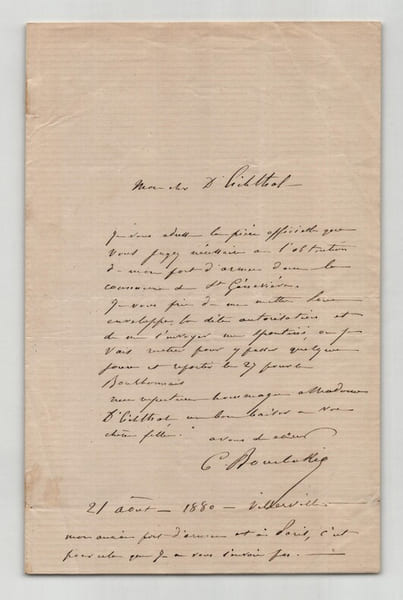 Mon cher D'Eichthal
Je vous adresse la pièce officielle que
vous jugez nécessaire à l'obtention
de mon port d'armes dans la
commune de St Geneviève.
Je vous prie de me mettre sous
enveloppe la dite autorisation et
de me l'envoyer
vais rester pour y passer quelques
jours et repartir le 27 pour le
Bourbonnais
mes respectueux hommages à Madame
D'Eichthal un bon baiser à votre
chère fille.
à vous de cœur
C
21 août - 1880 - Villerville
mon ancien port d'armes est à Paris, c'est
pour cela que je ne vous l'envoie pas.